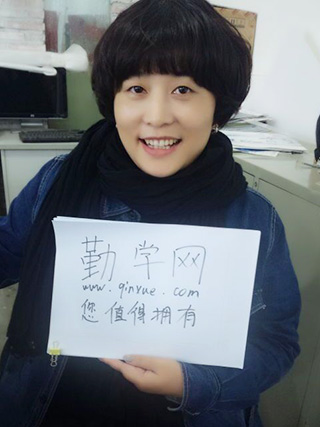 勤学网
www.qinxue.com
您值得拥有